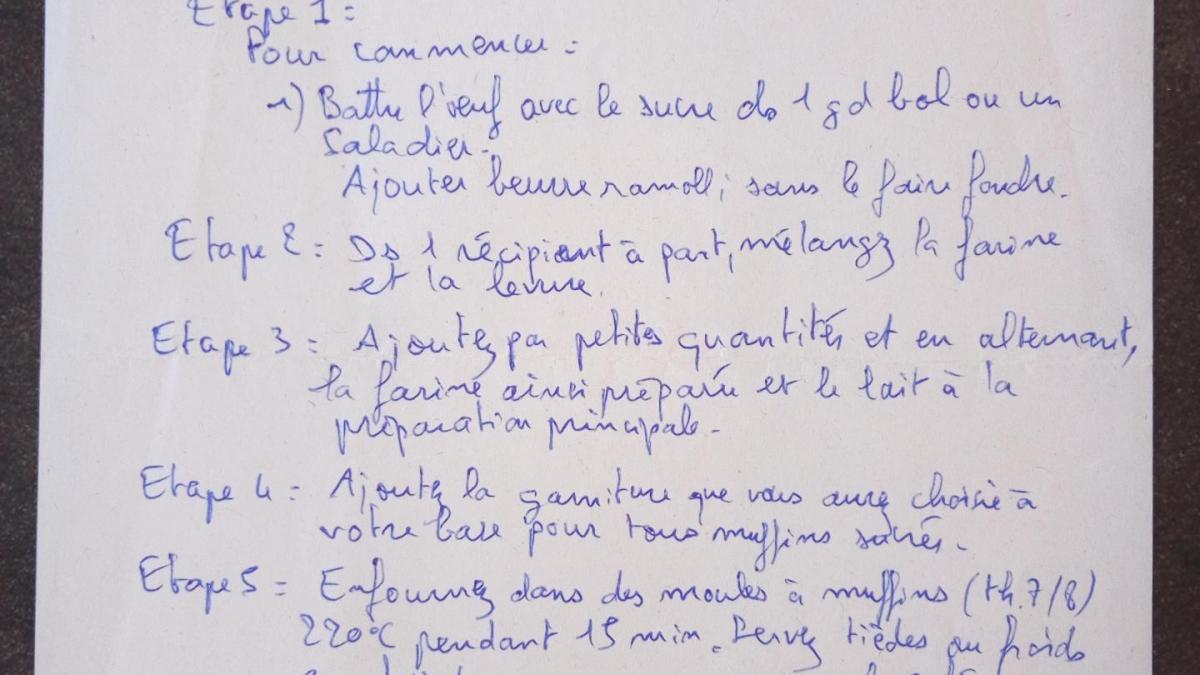 Etape 1 :
Pour commencer :
1) Battre l'œuf avec le sucre ds 1 gd bol ou un
saladier.
Ajouter beurre ramolli sans le faire fondre.
Etape 2 : Ds 1 récipient à part, mélangez la farine
et la levure.
Etape 3 : Ajoutez par petites quantités et en alternant,
la farine ainsi préparée et le lait à la
préparation principale.
Etape 4 : Ajoutez la garniture que vous aurez choisie à
votre base pour tous muffins sucrés.
Etape 5 : Enfournez dans des moules à muffins (th.7/8)
220°C pendant 15 min. Servez tièdes ou froids